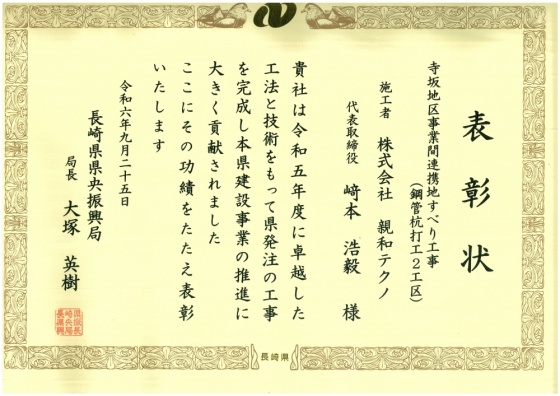 表彰状
寺坂地区事業間連携地すべり工事
（鋼管杭打工２工区）
施工者　株式会社　親和テクノ
代表取締役　﨑本　浩毅　様
貴社は令和五年度に卓越した
工法と技術をもって県発注の工事
を完成し本県建設事業の推進に
大きく貢献されました
ここにその功績をたたえ表彰
いたします
令和六年九月二十五日
長崎県県央振興局
局長　大塚　英樹
長崎県